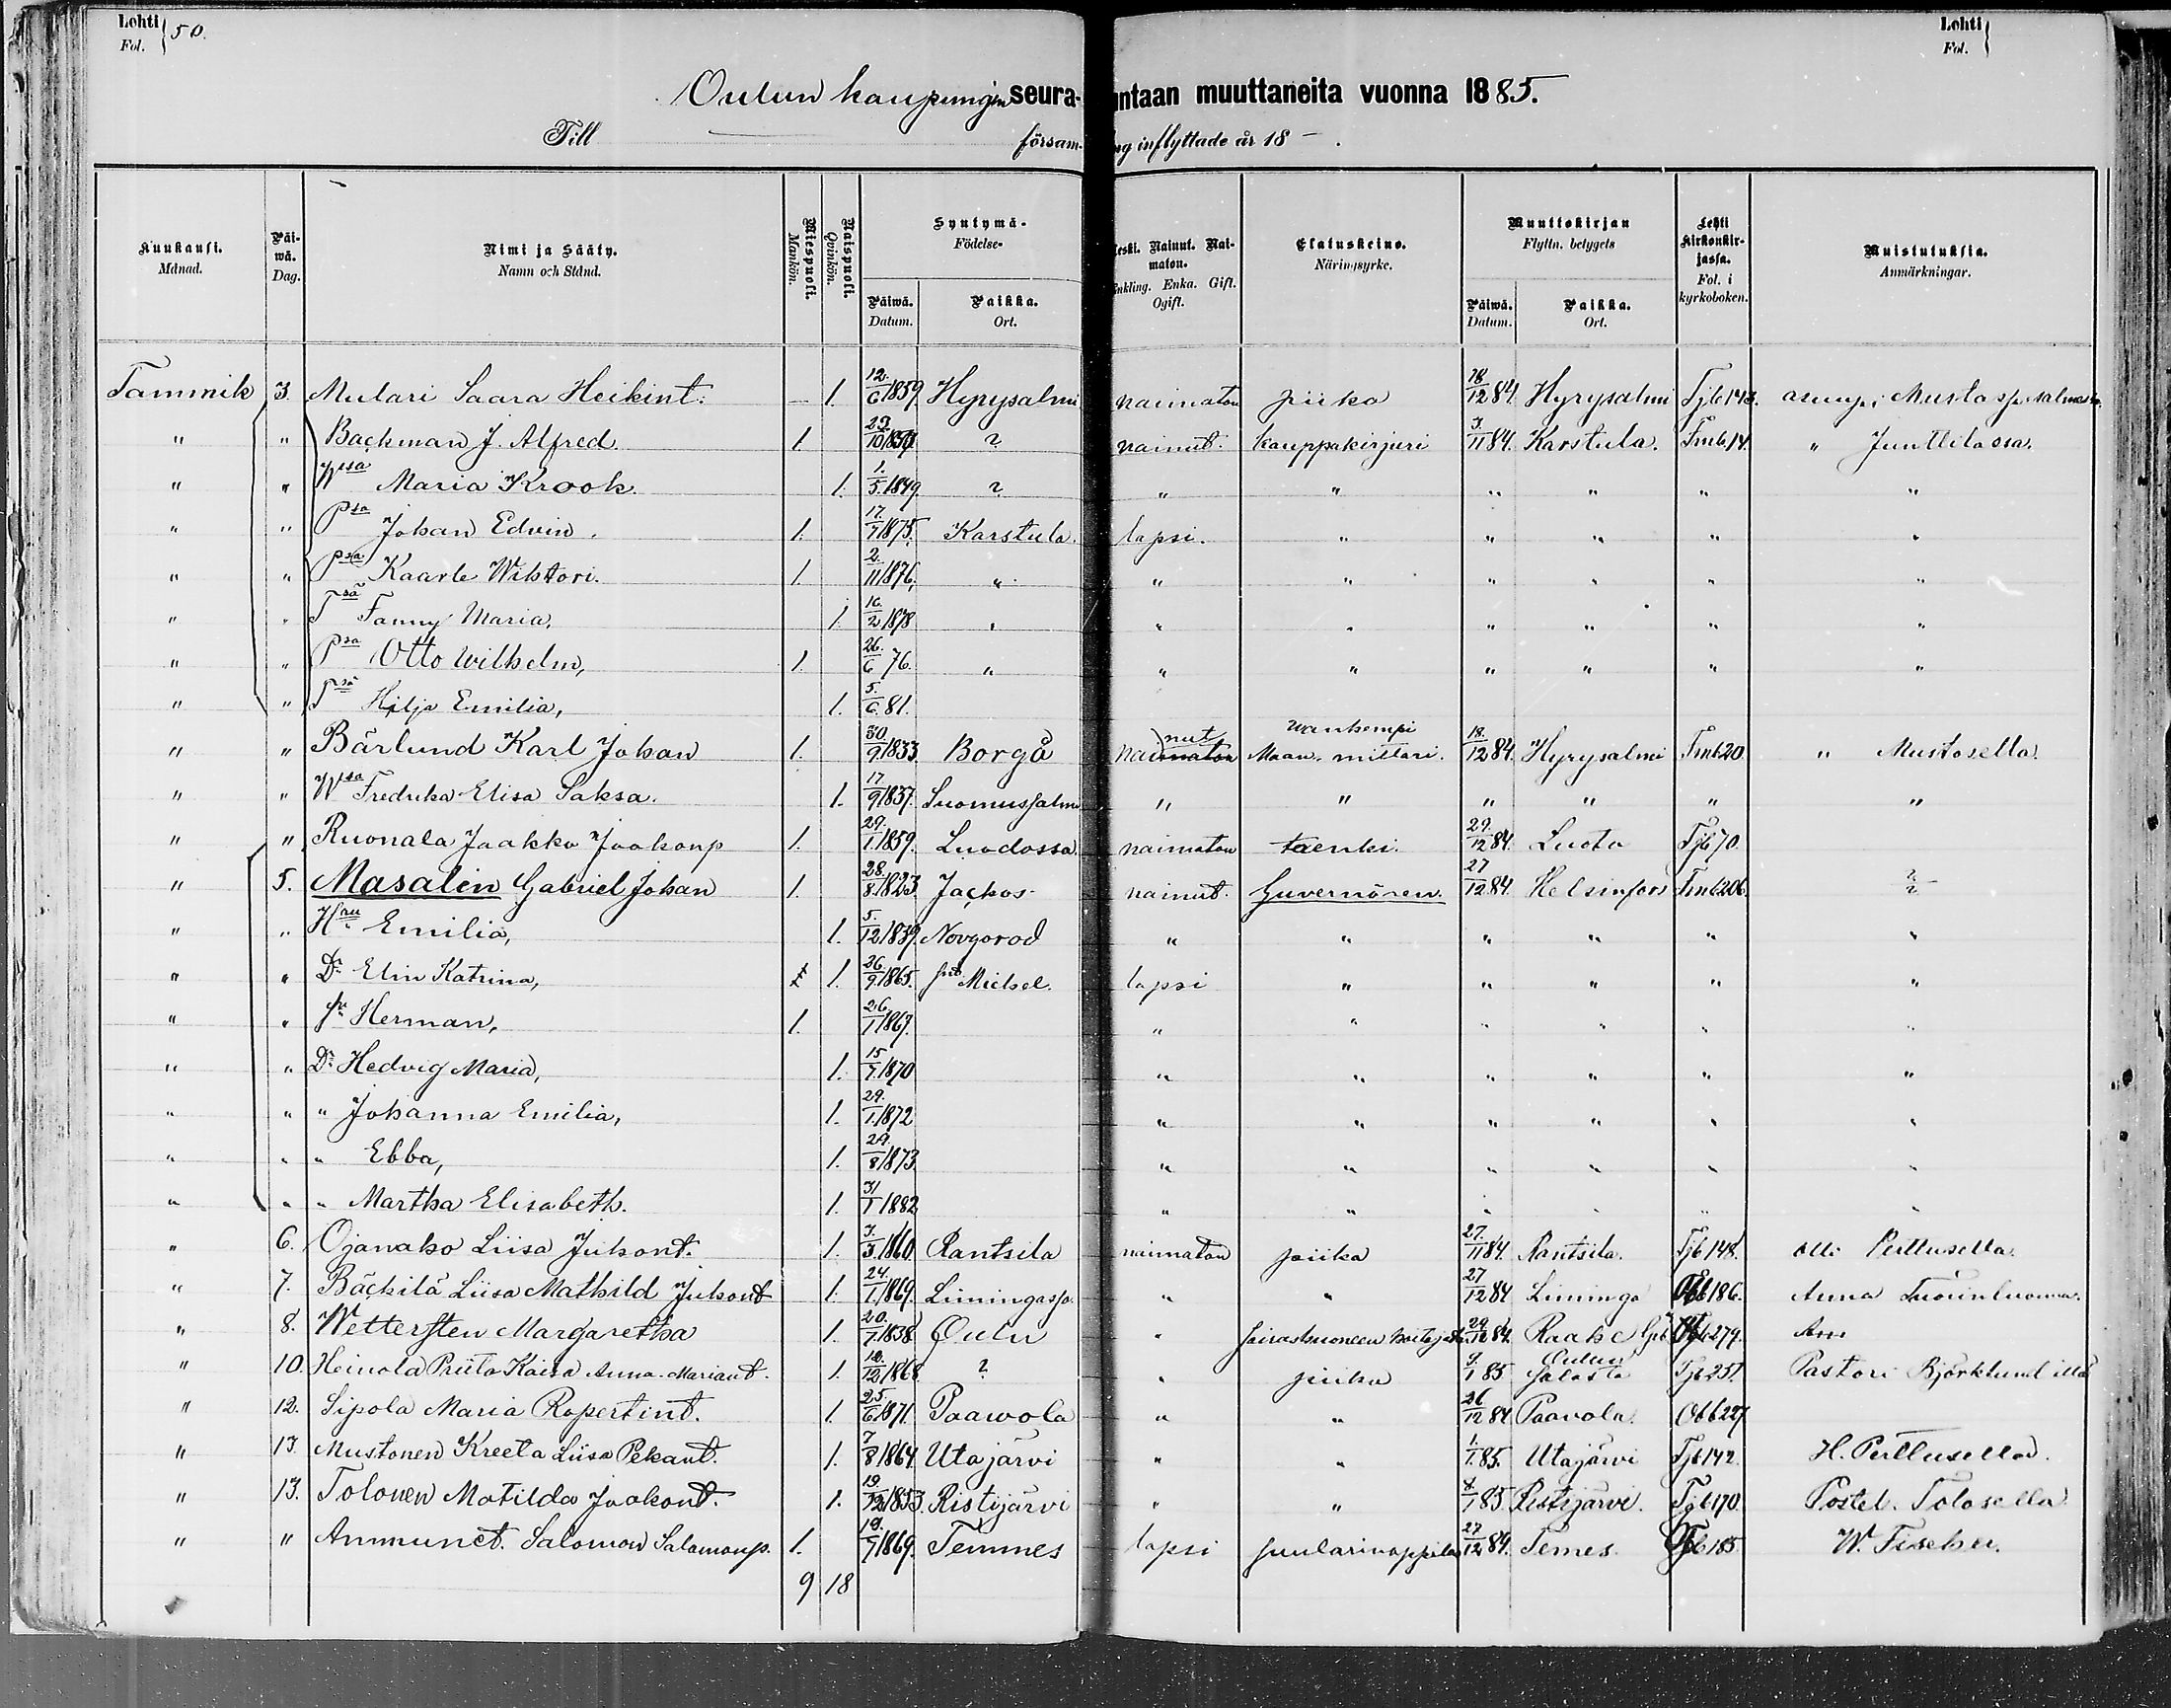 Lohti 50.
Fol.
Lohti
Fol.
Oulun kaupungin seura- ntaan muuttaneita vuonna 1885.
Till församl- ng inflyttade år 18 - .
Kuukausi. Månad.
Päiwä. Dag.
Nimi ja Sääty. Namn och Stånd.
Miespuoli. Mankön.
Naispuoli. Qvinkön.
Syntymä- Födelse-
Päiwä. Datum.
Paikka. Ort.
Leski. Nainut. Naimaton. Enkling. Enka. Gift. Ogift.
Elatuskeino. Näringsyrke.
Muuttokirjan Flyttn. betygets
Päiwä. Datum.
Paikka. Ort.
Lehti Kirkonkirjassa. Fol. i kyrkoboken.
Muistutuksia. Anmärkningar.
Tammik 3. Mulari Saara Heikint. 1. 12/6 1859. Hyrysalmi naimaton piika 18/12 84. Hyrysalmi Tjb143. asuupi
" " Backman J. Alfred. 1. 29/10 ? nainut. kauppakirjuri 3/11 84. Karstula. Tmb.14. " Junttilassa.
" " Wsa Maria Krook. 1. 1/5 1849. ? " " " " " "
" " Psa Johan Edvin. 1. 17/7 1875. Karstula. lapsi. " " " " "
" " Psa Kaarle Wiktori. 1. 2/11 1876. " " " " " " "
" " Tsä Fanny Maria. 1. 16/2 1878 " " " " " " "
" " Psa Otto Wilhelm, 1. 26/6 76. " " " " " " "
" " Tsä Hilja Emilia, 1. 5/6 81.
" " Bärlund Karl Johan 1. 30/9 1833 Borgå nainut wanhempi Maan. mittari. 18/12 84. Hyrysalmi Tmb20 " Mustosella.
" " Wsa Fredrika Elisa Saksa. 1. 17/9 1837. Suomussalmi " " " " " "
" " Ruonala Jaakko Jaakonp 1. 29/1 1859. Luodossa. naimaton taenki. 29/12 84. Luoto Tjb70.
" 5. Masalin Gabriel Johan 1. 28/8 1823. Jackos nainut. Guvernören. 27/12 84. Helsinfors Tmb206. ?
" " Hru Emilia, 1. 5/12 1839. Novgorod " " " " " "
" " Dr Elin Katrina, 1. 26/9 1865. St Michel. lapsi " " " " "
" " Sn Herman, 1. 26/1 1867. " " " " " "
" " Dr Hedvig Maria, 1. 15/7 1870 " " " " " "
" " " Johanna Emilia, 1. 29/1 1872 " " " " " "
" " " Ebba, 1. 29/8 1873. " " " " " "
" " " Martha Elisabeth. 1. 31/1 1882 " " " " " "
" 6. Ojanaho Liisa Juhont. 1. 3/3 1860. Rantsila naimaton piika 27/11 84. Rantsila. Tjb148. Olli Perttusella.
" 7. Bäckilä Liisa Mathild Juhont 1. 24/1 1869. Limingassa. " " 27/12 84 Liminga 186. Anna
" 8. Wettersten Margaretha 1. 20/7 1838. Oulu " sairashuoneen hoitajatar 29/12 84. Raahe 279.
" 10. Heinola Priita Kaisa Anna-Mariant. 1. 12/12 1868 ? " piika 9/1 85 Oulun Salosta Tjb251. Pastori Björklundilla
" 12. Sipola Maria Ropertint. 1. 25/6 1871. Paawola " " 26/12 84 Paavola. Obb227
" 13. Mustonen Kreeta Liisa Pekant. 1. 7/8 1864. Utajärvi " " 1/1 85. Utajärvi Tjb142. H. Perttusella.
" 13. Tolonen Matilda Jaakont. 1. 19/12 1853. Ristijärvi " " 8/1 85. Ristijärvi. Tjb170. Postel. Tolosella
" " Ammunet. Salomon Salamonp. 1. 19/7 1869. Temmes lapsi 27/12 84. Temes. 185 W. Fischer.
9 18